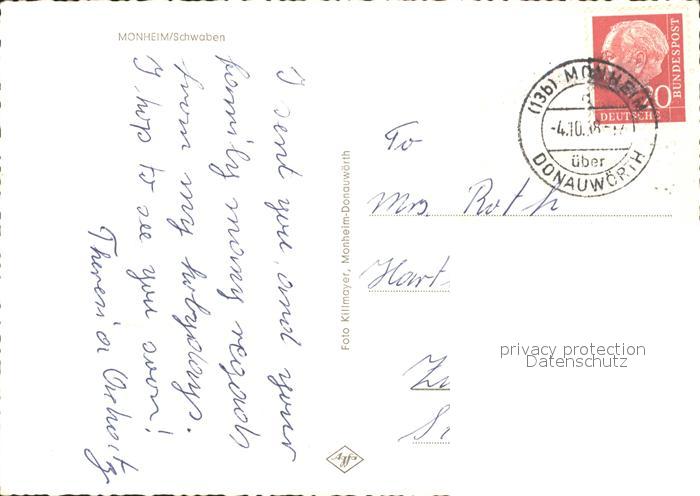 MONHEIM/Schwaben
I send you and your
family many regards
from my holydays.
I hop to see you soon!
Theresia
Foto Killmayer, Monheim-Donauwörth
To
Mrs. Roth
Hart
privacy protection
Datenschutz
DEUTSCHE
BUNDESPOST
(13b) MONHEIM
-4.10.
über
DONAUWÖRTH